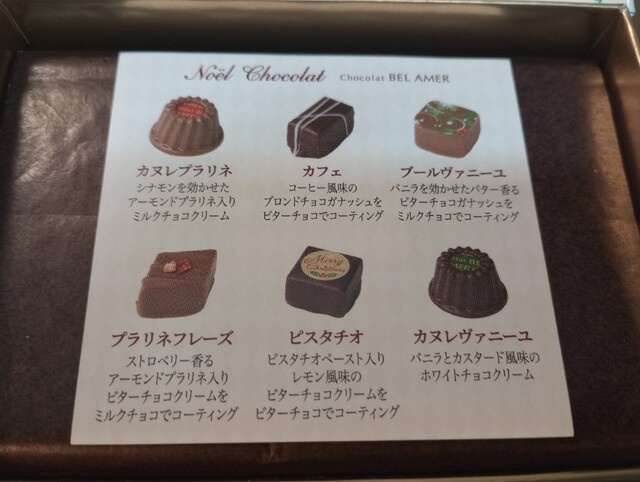 Noël Chocolat Chocolat BEL AMER
カヌレプラリネ
シナモンを効かせた
アーモンドプラリネ入り
ミルクチョコクリーム
カフェ
コーヒー風味の
ブロンドチョコガナッシュを
ビターチョコでコーティング
ブールヴァニーユ
バニラを効かせたバター香る
ビターチョコガナッシュを
ミルクチョコでコーティング
プラリネフレーズ
ストロベリー香る
アーモンドプラリネ入り
ビターチョコクリームを
ミルクチョコでコーティング
Merry
Christmas
ピスタチオ
ピスタチオペースト入り
レモン風味の
ビターチョコクリームを
ビターチョコでコーティング
カヌレヴァニーユ
バニラとカスタード風味の
ホワイトチョコクリーム